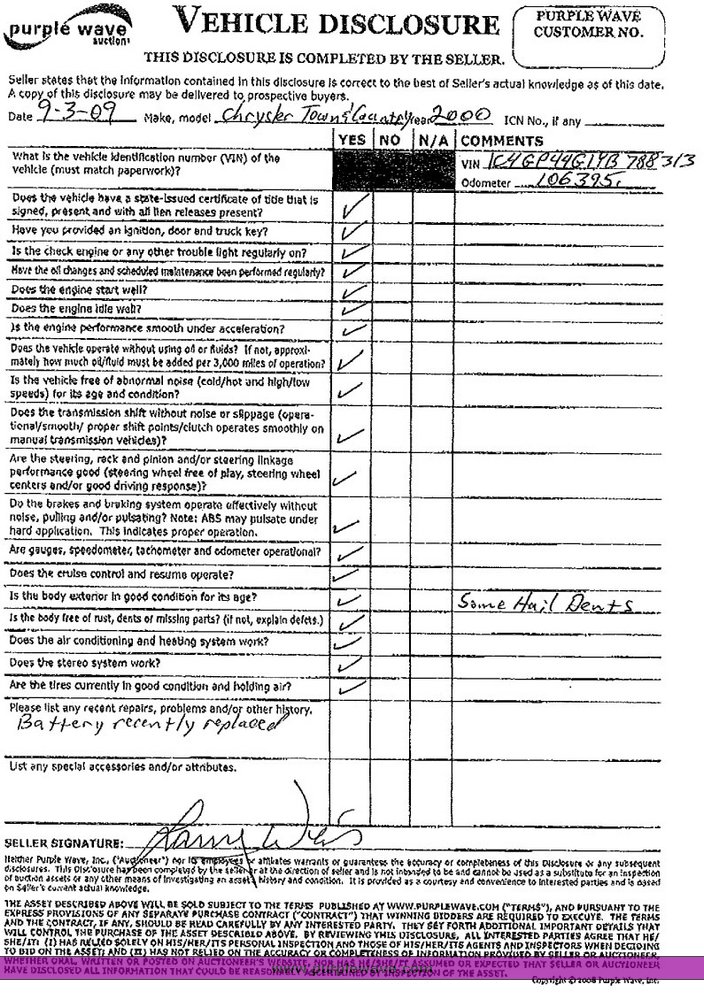 purple wave
auction!
VEHICLE DISCLOSURE
PURPLE WAVE
CUSTOMER NO.
THIS DISCLOSURE IS COMPLETED BY THE SELLER.
Seller states that the information contained in this disclosure is correct to the best of Seller's actual knowledge as of this date.
A copy of this disclosure may be delivered to prospective buyers.
Date 9-3-09 Make, model Chrysler Town & Country Year 2000 ICN No., if any
YES NO N/A COMMENTS
What is the vehicle identification number (VIN) of the
vehicle (must match paperwork)?
VIN 1C4GP44G1YB788313
Odometer 106395.
Does the vehicle have a state-issued certificate of title that is
signed, present and with all lien releases present?
Have you provided an ignition, door and truck key?
Is the check engine or any other trouble light regularly on?
Have the oil changes and scheduled maintenance been performed regularly?
Does the engine start well?
Does the engine idle well?
Is the engine performance smooth under acceleration?
Does the vehicle operate without using oil or fluids? If not, approxi-
mately how much oil/fluid must be added per 3,000 miles of operation?
Is the vehicle free of abnormal noise (cold/hot and high/low
speeds) for its age and condition?
Does the transmission shift without noise or slippage (opera-
tional/smooth/ proper shift points/clutch operates smoothly on
manual transmission vehicles)?
Are the steering, rack and pinion and/or steering linkage
performance good (steering wheel free of play, steering wheel
centers and/or good driving response)?
Do the brakes and braking system operate effectively without
noise, pulling and/or pulsating? Note: ABS may pulsate under
hard application. This indicates proper operation.
Are gauges, speedometer, tachometer and odometer operational?
Does the cruise control and resume operate?
Is the body exterior in good condition for its age?
Some Hail Dents
Is the body free of rust, dents of missing parts? (if not, explain defets.)
Does the air conditioning and heating system work?
Does the stereo system work?
Are the tires currently in good condition and holding air?
Please list any recent repairs, problems and/or other history.
Battery recently replaced
List any special accessories and/or attributes.
SELLER SIGNATURE:
Neither Purple Wave, Inc., ("Auctioneer") nor its employees or affiliates warrants or guarantees the accuracy or completeness of this Disclosure or any subsequent
disclosures. This Disclosure has been completed by the seller or at the direction of seller and is not intended to be and cannot be used as a substitute for an inspection
of auction assets or any other means of investigating an asset's history and condition. It is provided as a courtesy and convenience to interested parties and is based
on Seller's current actual knowledge.
THE ASSET DESCRIBED ABOVE WILL BE SOLD SUBJECT TO THE TERMS PUBLISHED AT WWW.PURPLEWAVE.COM ("TERMS"), AND PURSUANT TO THE
EXPRESS PROVISIONS OF ANY SEPARATE PURCHASE CONTRACT ("CONTRACT") THAT WINNING BIDDERS ARE REQUIRED TO EXECUTE. THE TERMS
AND THE CONTRACT, IF ANY, SHOULD BE READ CAREFULLY BY ANY INTERESTED PARTY. THEY SET FORTH ADDITIONAL IMPORTANT DETAILS THAT
WILL CONTROL THE PURCHASE OF THE ASSET DESCRIBED ABOVE. BY REVIEWING THIS DISCLOSURE, ALL INTERESTED PARTIES AGREE THAT HE/
SHE/IT: (I) HAS RELIED SOLELY ON HIS/HER/ITS PERSONAL INSPECTION AND THOSE OF HIS/HER/ITS AGENTS AND INSPECTORS WHEN DECIDING
TO BID ON THE ASSET; AND (II) HAS NOT RELIED ON THE ACCURACY OR COMPLETENESS OF INFORMATION PROVIDED BY SELLER OR AUCTIONEER,
WHETHER ORAL, WRITTEN OR POSTED ON AUCTIONEER'S WEBSITE, NOR HAS HE/SHE/IT ASSUMED OR EXPECTED THAT SELLER OR AUCTIONEER
HAVE DISCLOSED ALL INFORMATION THAT COULD BE REASONABLY ASCERTAINED BY INSPECTION OF THE ASSET.
www.purplewave.com
Copyright © 2008 Purple Wave, Inc.